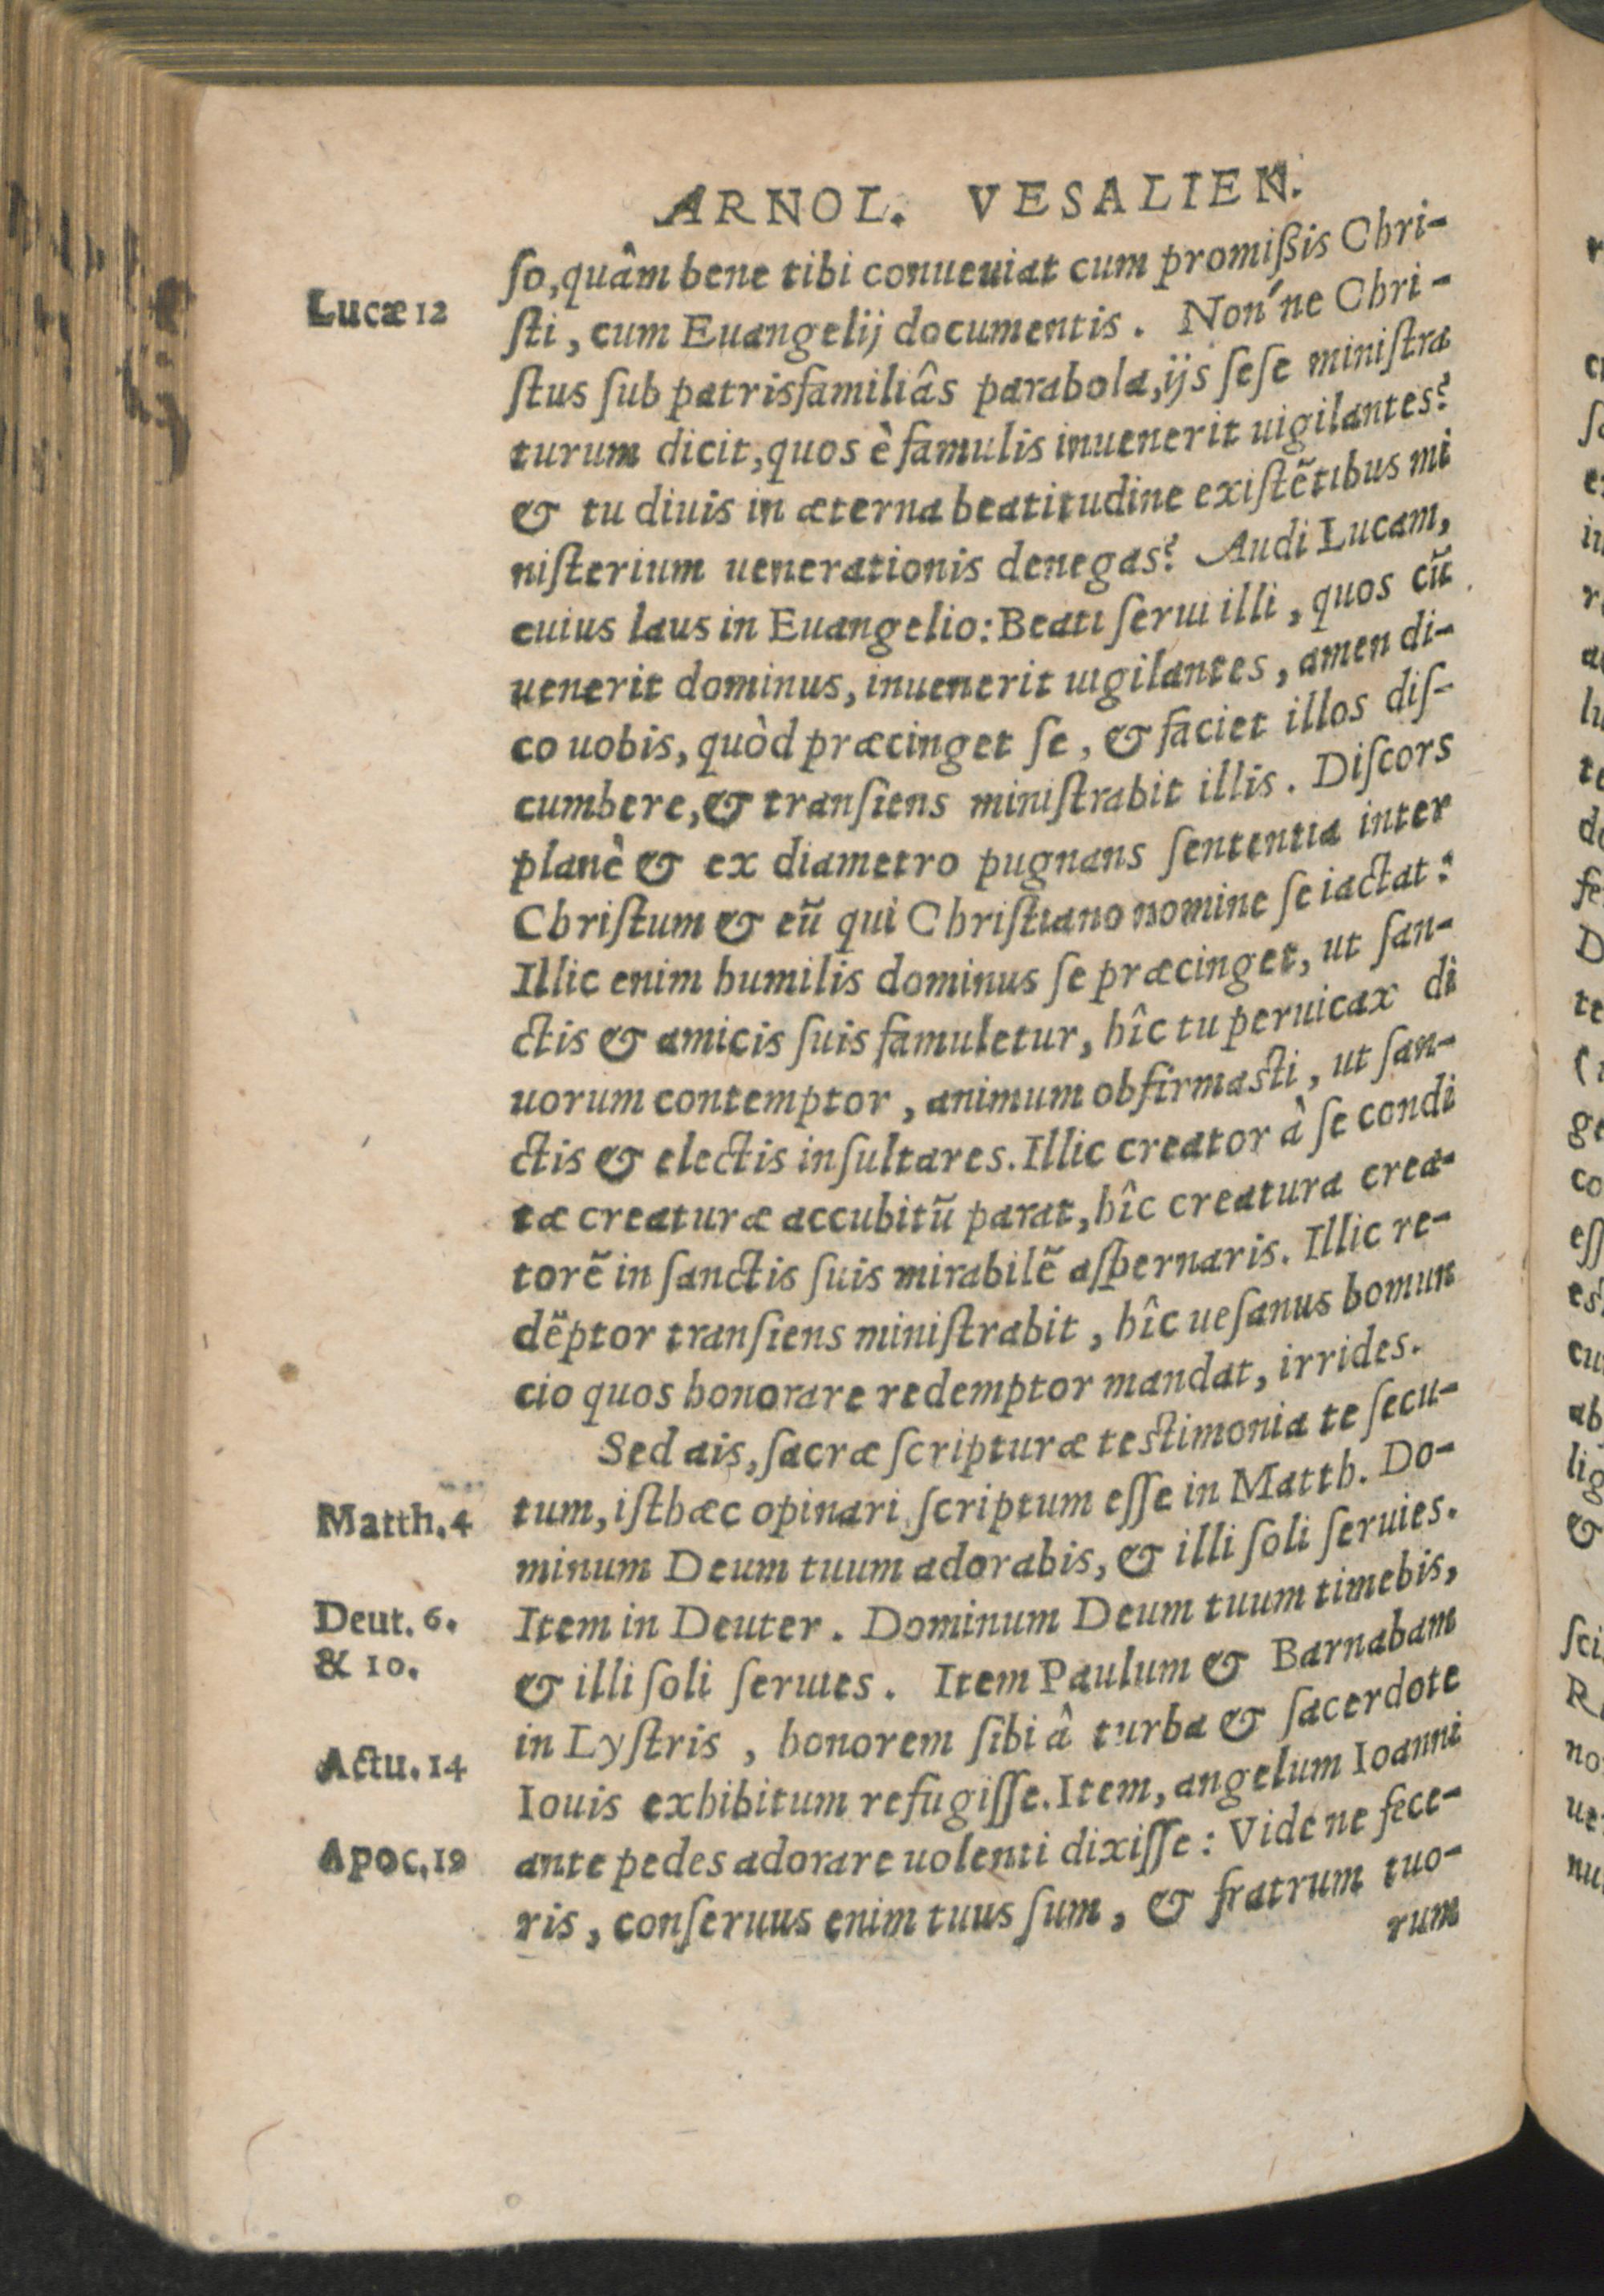 ARNOL. VESALIEN.
ſo, quâm bene tibi conueuiat cum promiſsis Chri-
Lucæ 12
ſti, cum Euangelij documentis. Non'ne Chri-
ſtus ſub patrisfamiliâs parabola, ijs ſeſe miniſtra
turum dicit, quos è famulis inuenerit uigilantes?
& tu diuis in æterna beatitudine exiſtẽtibus mi
niſterium uenerationis denegas? Audi Lucam,
cuius laus in Euangelio: Beati ſerui illi, quos cũ
uenerit dominus, inuenerit uigilantes, amen di-
co uobis, quòd præcinget ſe, & faciet illos diſ-
cumbere, & tranſiens miniſtrabit illis. Diſcors
planè & ex diametro pugnans ſententia inter
Chriſtum & eũ qui Chriſtiano nomine ſe iactat:
Illic enim humilis dominus ſe præcinget, ut ſan-
ctis & amicis ſuis famuletur, hîc tu peruicax di
uorum contemptor, animum obfirmaſti, ut ſan-
ctis & electis inſultares. Illic creator à ſe condi
tæ creaturæ accubitũ parat, hîc creatura crea-
torẽ in ſanctis ſuis mirabilẽ aſpernaris. Illic re-
dẽptor tranſiens miniſtrabit, hîc ueſanus homun
cio quos honorare redemptor mandat, irrides.
Sed ais, ſacræ ſcripturæ teſtimonia te ſecu-
Matth. 4
tum, iſthæc opinari ſcriptum eſſe in Matth. Do-
minum Deum tuum adorabis, & illi ſoli ſeruies.
Deut. 6.
Item in Deuter. Dominum Deum tuum timebis,
& 10.
& illi ſoli ſeruies. Item Paulum & Barnabam
in Lyſtris, honorem ſibi â turba & ſacerdote
Actu. 14
Iouis exhibitum refugiſſe. Item, angelum Ioanni
Apoc. 19
ante pedes adorare uolenti dixiſſe: Vide ne fece-
ris, conſeruus enim tuus ſum, & fratrum tuo-
rum